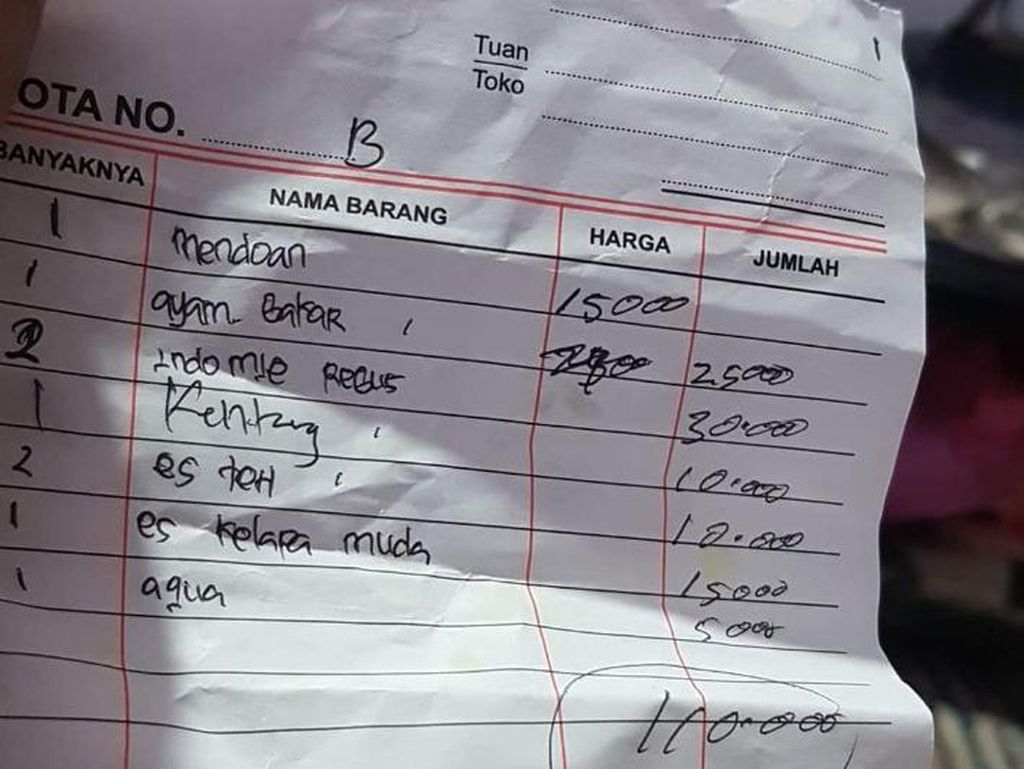 Tuan
Toko
OTA NO. B
BANYAKNYA NAMA BARANG HARGA JUMLAH
1 Mendoan 15000
1 ayam Bakar 25000
2 indomie REBUS 30.000
1 Kentang 10.000
2 es teH 10.000
1 es kelapa muda 15000
1 aqua 5000
110.000